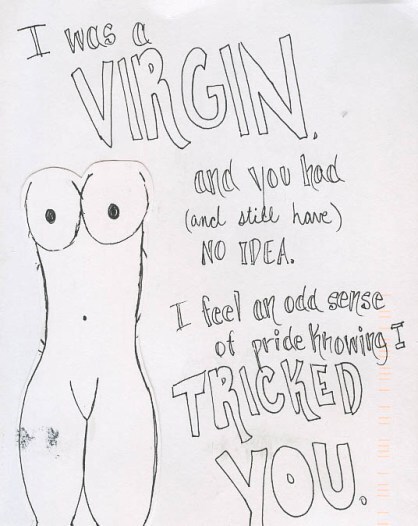 I was a
VIRGIN.
and you had
(and still have)
NO IDEA.
I feel an odd sense
of pride knowing I
TRICKED
YOU.